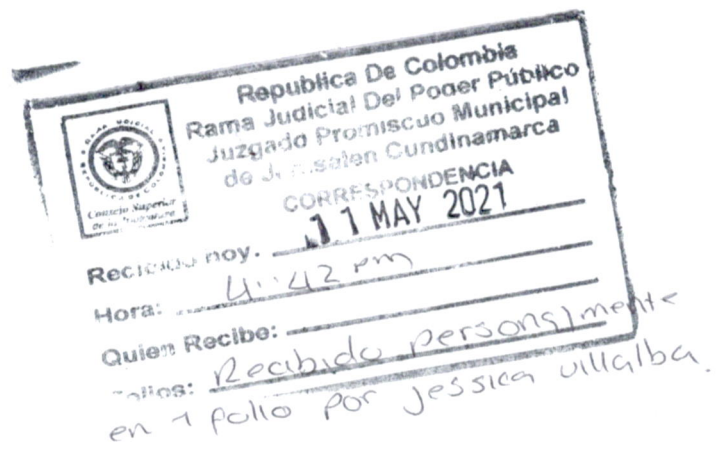 Republica De Colombia
Rama Judicial Del Poder Público
Juzgado Promiscuo Municipal
de Jerusalen Cundinamarca
Consejo Superior
de la Judicatura
CORRESPONDENCIA
Recibido hoy. 11 MAY 2021
Hora: 4:42 pm
Quien Recibe:
Folios: Recibido personalmente
en 1 folio por Jessica Villalba.